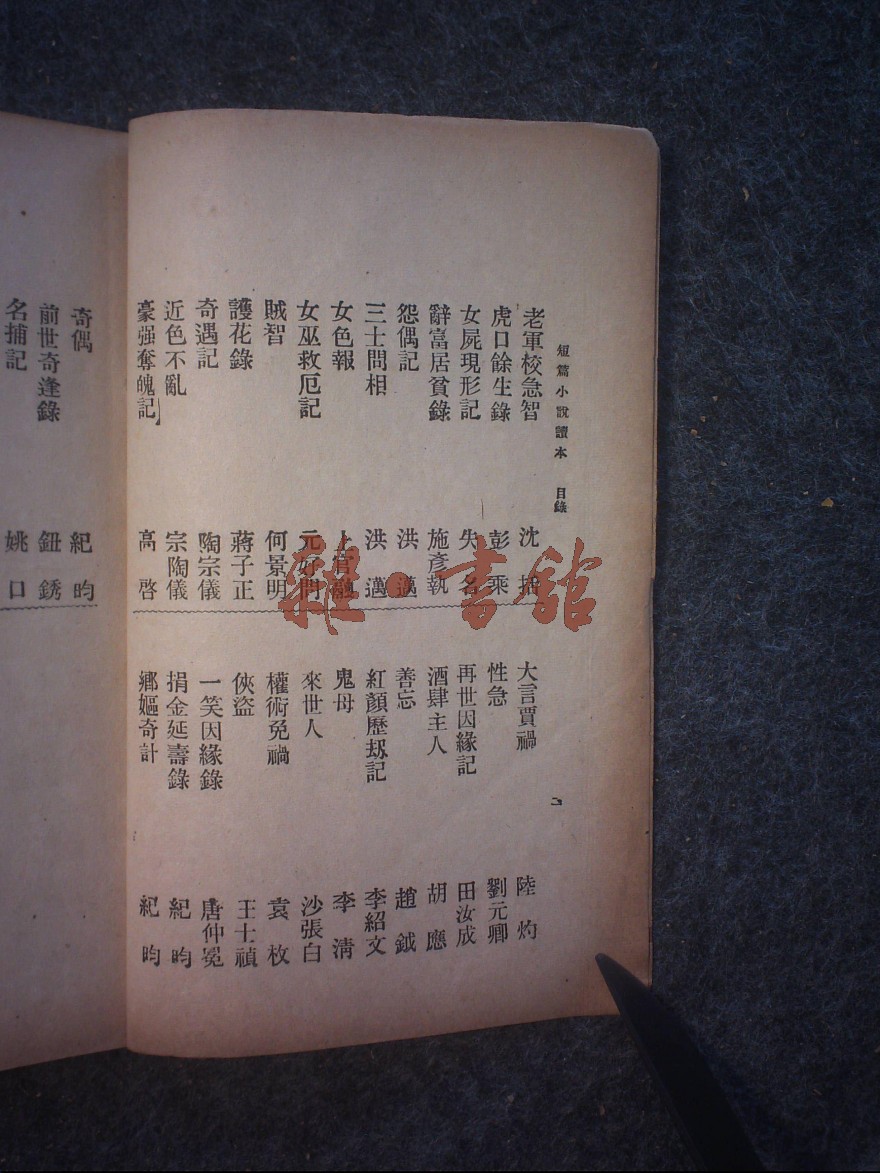 短篇小說讀本 目錄
二
老軍校急智 沈括
虎口餘生錄 彭乘
女屍現形記 失名
辭富居貧錄 施彥執
怨偶記 洪邁
三士問相 洪邁
女色報 上官融
女巫救厄記 元好問
賊智 何景明
護花錄 蔣子正
奇遇記 陶宗儀
近色不亂 宗陶儀
豪强奪魄記 高啓
大言賈禍 陸灼
性急 劉元卿
再世因緣記 田汝成
酒肆主人 胡應
善忘 趙鉞
紅顏歷刼記 李紹文
鬼母 李清
來世人 沙張白
權術免禍 袁枚
俠盜 王士禎
一笑因緣錄 唐仲冕
捐金延壽錄 紀昀
鄉嫗奇計 紀昀
奇偶 紀昀
前世奇逢錄 鈕銹
名捕記 姚口
雜·書館